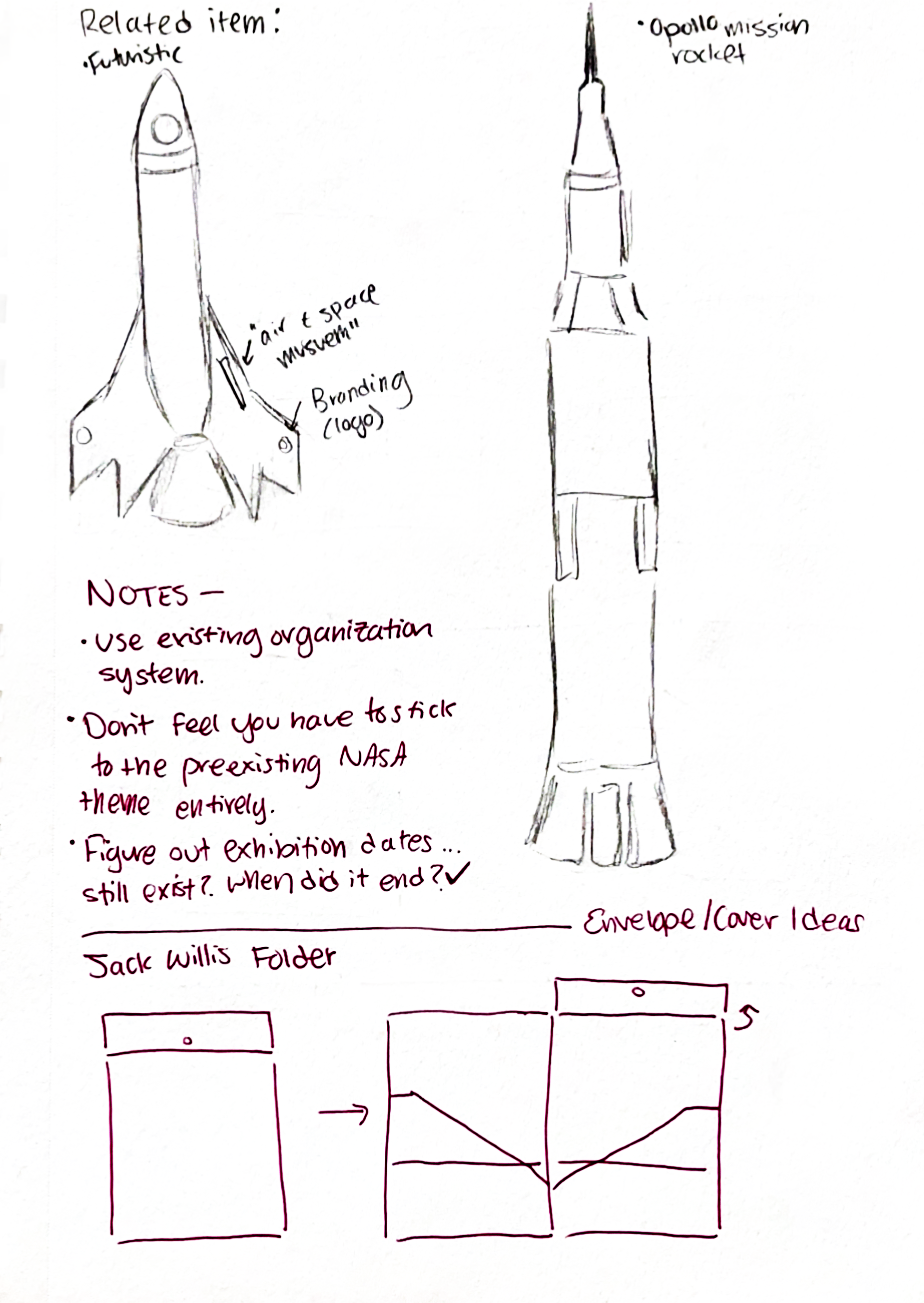 Related item:
•Futuristic
•Apollo mission
rocket
"air & space
musuem"
Branding
(logo)
NOTES —
•Use existing organization
system.
•Don't feel you have to stick
to the preexisting NASA
theme entirely.
•Figure out exhibition dates...
still exist? When did it end?✓
Envelope/Cover Ideas
Jack Willis Folder